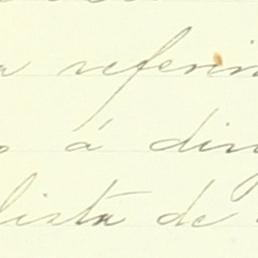 a referin
o á diri
lista de